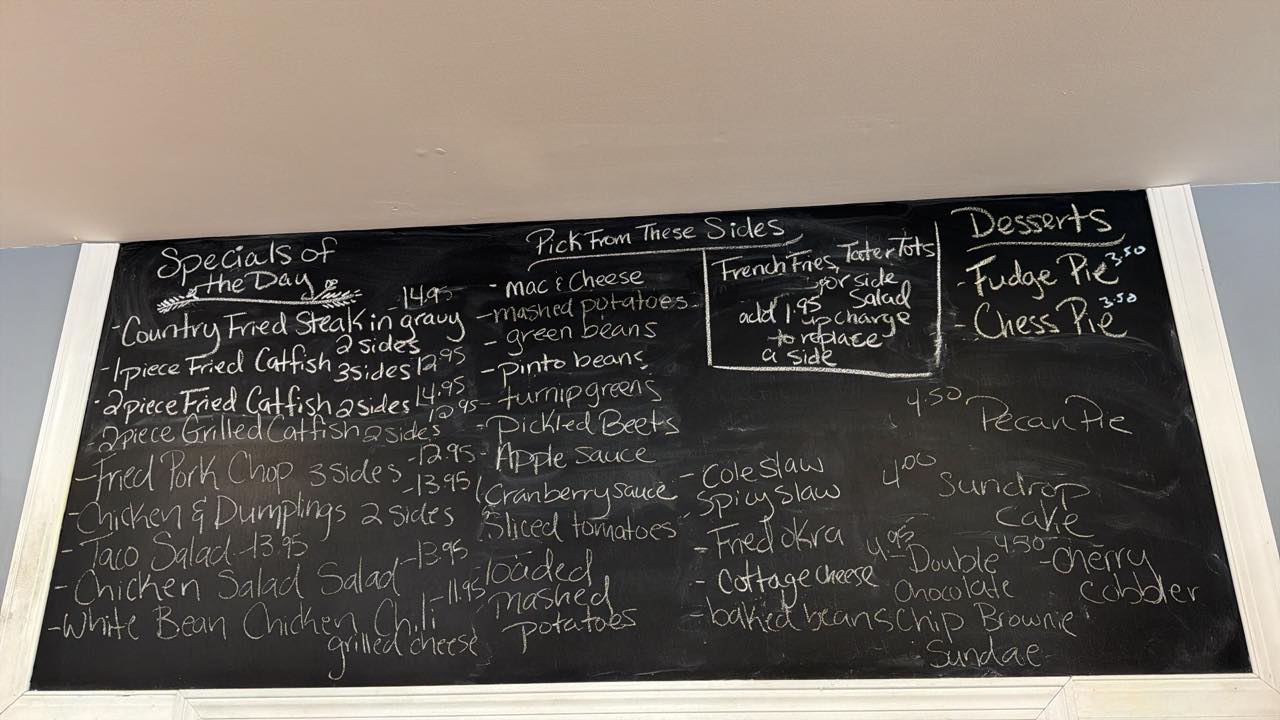 Specials of
the Day
-Country Fried Steak in gravy -14.95
2 sides
-1piece Fried Catfish 3sides 12.95
-2piece Fried Catfish 2sides 14.95
-2piece Grilled Catfish 2sides 12.95
-Fried Pork Chop 3 sides -12.95
-Chicken & Dumplings 2 sides -13.95
-Taco Salad -13.95
-Chicken Salad Salad -13.95
-White Bean Chicken Chili -11.95
grilled cheese
Pick From These Sides
-mac & Cheese
-mashed potatoes
-green beans
-pinto beans
-turnip greens
-Pickled Beets
-Apple Sauce
Cranberry sauce
Sliced tomatoes
-loaded
mashed
potatoes
French Fries, Tater Tots
or side
Salad
add 1.95 up charge
to replace
a side
-Cole slaw
-Spicy slaw
-Fried okra
-Cottage cheese
-baked beans
Desserts
-Fudge Pie 3.50
-Chess Pie 3.50
4.50 Pecan Pie
4.00 Sundrop
Cake
4.95 Double
Chocolate
Chip Brownie
Sundae
4.50 -Cherry
Cobbler